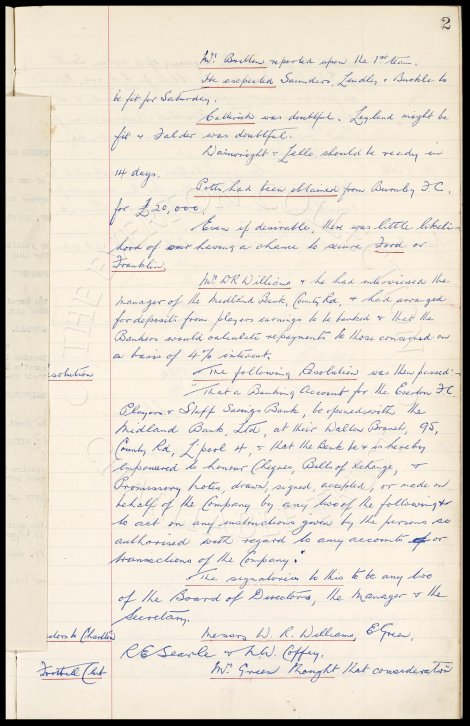 2
Mr. Britton reported upon the 1st team.
He expected Saunders, Lindley & Buckle to
be fit for Saturday.
Catterick was doubtful. Leyland might be
fit & Falder was doubtful.
Wainwright & Jello should be ready in
14 days.
Potts, had been obtained from Burnley F.C.
for £20,000.
Even if desirable, there was little likeli-
hood of our having a chance to secure Ford or
Franklin.
Mr. W.R. Williams & he had interviewed the
manager of the Midland Bank, County Rd, & had arranged
for deposits from players earnings to be banked & that the
Bankers would calculate repayments to those concerned on
a basis of 4% interest.
solution
The following Resolution was then passed:-
That a Banking Account for the Everton F.C.
Players & Staff Savings Bank, be opened with the
Midland Bank, Ltd, at their Walton Branch, 95,
County Rd, L'pool 4, & that the Bank be & is hereby
empowered to honour Cheques, Bills of Xchange, &
Promissory Notes, drawn, signed, accepted, or made on
behalf of the Company by any two of the following &
to act on any instructions given by the persons so
authorised with regard to any accounts or
transactions of the Company.
The signatories to this to be any two
of the Board of Directors, the Manager & the
Secretary.
Messrs W. R. Williams, E Green,
R E Searle & N.W. Coffey.
ectors to Charlton
Football Club
Mr. Green thought that consideration